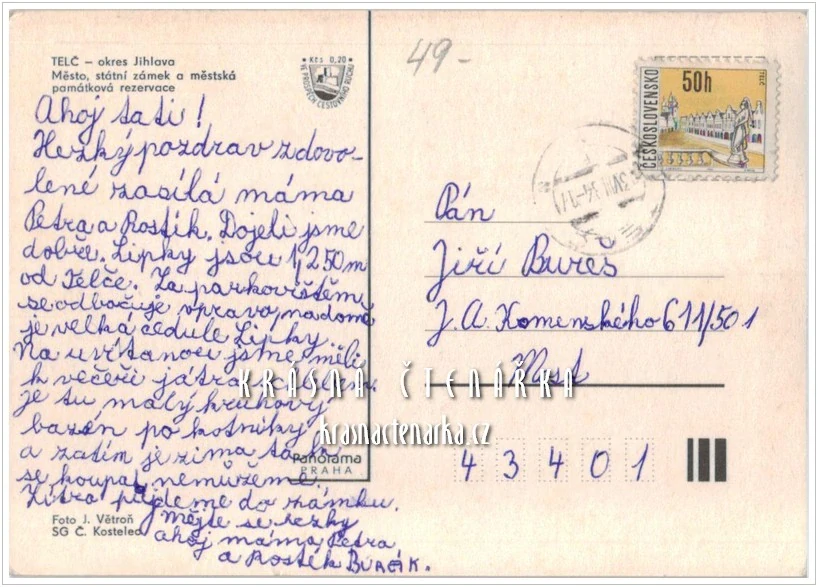 TELČ – okres Jihlava
Město, státní zámek a městská
památková rezervace
Kčs 0,20
VE PROSPĚCH CESTOVNÍHO RUCHU
Ahoj tati!
Hezký pozdrav z dovo-
lené zasílá máma
Petra a Rostík. Dojeli jsme
dobře. Lipky jsou 1,250 m
od Telče. Za parkovištěm
se odbočuje vpravo, na domě
je velká cedule Lipky.
Na uvítanou jsme měli
k večeři játra
Je tu malý kruhový
bazén po kotníky
a zatím je zima tak
se koupat nemůžeme.
Zítra půjdeme do zámku.
Mějte se hezky
ahoj máma Petra
a Rostík BURČÍK.
Panorama
PRAHA
Foto J. Větroň
SG Č. Kostelec
49-
ČESKOSLOVENSKO
50h
TELČ
Pán
Jiří Bureš
J. A. Komenského 611/501
Most
43401
KRÁSNÁ ČTENÁRKA
krasnactenarka.cz